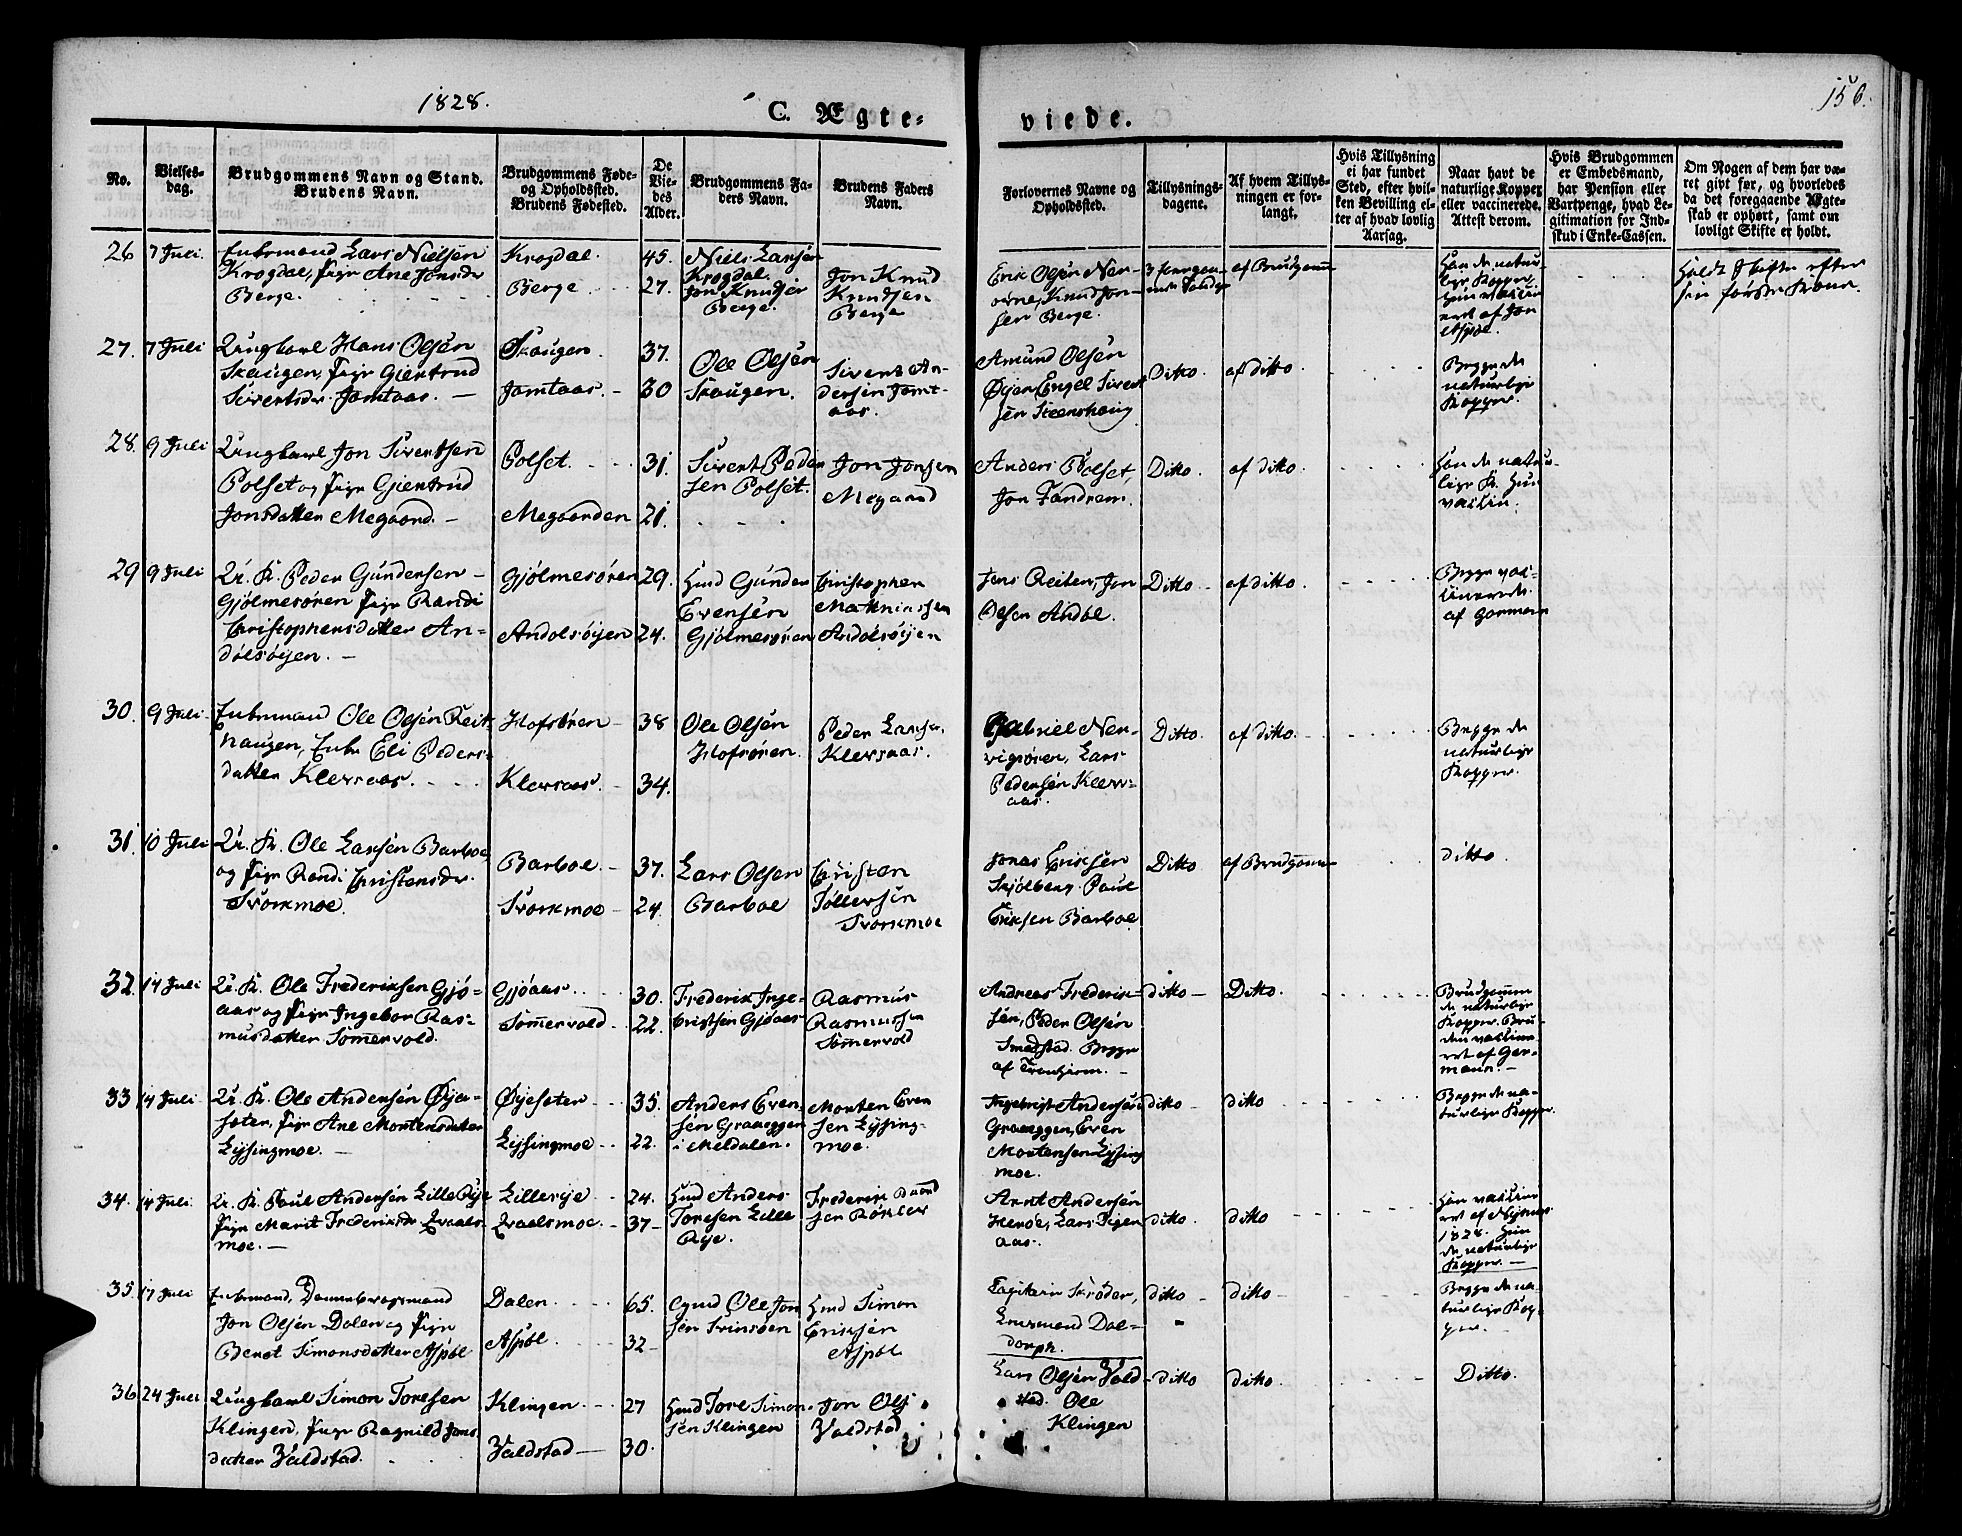 1828.
C. Ægte-
viede.
156.
No.
Vielses-
dag.
Brudgommens Navn og Stand.
Brudens Navn.
Brudgommens Føde-
og Opholdssted.
Brudens Fødested.
De
Vie-
des
Alder.
Brudgommens Fa-
ders Navn.
Brudens Faders
Navn.
Forlovernes Navne og
Opholdssted.
Tillysnings-
dagene.
Af hvem Tillys-
ningen er for-
langt.
Hvis Tillysning
ei har fundet
Sted, efter hvil-
ken Bevilling el-
ler af hvad lovlig
Aarsag.
Naar havt de
naturlige Kopper
eller vaccinerede.
Attest derom.
Hvis Brudgommen
er Embedsmand,
har Pension eller
Vartpenge, hvad Le-
gitimation for Ind-
skud i Enke-Cassen.
Om Nogen af dem har væ-
ret gipt før, og hvorledes
da det foregaaende Ægte-
skab er ophørt, samt om
lovligt Skifte er holdt.
26
7 Juli.
Enkemand Lars Nielsen
Krogdal, Pige Ane Jonsdr
Berge.
Krogdal.
Berge
45.
27.
Niels Larsen
Krogdal.
Jon Knudsen
Berge.
Jon Knud
Knudsen
Berge
Erik Olsen
Knud Jon-
sen Berge.
af Brudgom
Han de natur-
lige Kopper,
Hun vaccin
eret af Jon
Holdt Skifte efter
sin første Kone.
27.
7 Juli
Ungkarl Hans Olsen
Skaugen, Pige Gjertrud
Sivertsdr. Jamtaas.
Skaugen.
Jamtaas.
37.
30
Ole Olsen
Skaugen.
Sivert An-
dersen Jamt-
aas.
Amund Olsen
Øyen Engel Sivert
sen Steenshaug
Ditto.
af ditto.
Begge de
naturlige
Kopper.
28.
9 Juli
Ungkarl Jon Sivertsen
Polset og Pige Gjertrud
Jonsdatter Megaard.
Polset.
Megaarden
31.
21.
Sivert Peder
sen Polset.
Jon Jonsen
Megaard
Anders Polset,
Jon Fandrem.
Ditto
af ditto.
Han de natur-
lige K. Hun
vaccin.
29
9 Juli
U. K. Peder Gundersen
Gjølmesøren Pige Randi
Christophersdatter An-
dølsøyen.
Gjølmesøren
Andolsøyen
29.
24.
Huusd Gunder
Evensen
Gjølmesøren
Christopher
Andolsøyen
Jens Reiten, Jon
Olsen Andøl.
Ditto
af ditto.
Begge vac-
cinerede
af Gormann
30.
9 Juli
Enkemand Ole Olsen Reit
haugen, Enke Eli Peders-
datter Klevsaas.
Hofsøren
Klevsaas.
38
34.
Ole Olsen
Hofsøren.
Peder Larsen
Klevsaas.
Gabriel Ner-
vigsøren, Lars
Pedersen Klevs-
aas.
Ditto.
af ditto.
Begge de
naturlige
Kopper.
31.
10 Juli
U. K. Ole Larsen Barboe
og Pige Randi Christensdr.
Svorkmoe.
Barboe.
Svorkmoe
37.
24.
Lars Olsen
Barboe
Christen
Tøllersen
Svorkmoe
Jonas Eriksen
Skjølberg. Paul
Eriksen Barboe
Ditto
af Brudgom
ditto
32.
14 Juli
U. K. Ole Frederiksen Gjø-
aas og Pige Ingebor Ras-
musdatter Sommervold.
Gjøaas.
Sommervold
30.
22.
Frederik Inge-
Gjøaas
Rasmus
Rasmussen
Sommervold
Andreas Frederik-
sen, Peder Olsen
Smedstad. Begge
af Trondhiem.
ditto
Ditto.
Brudgommen
de naturlige
Kopper. Bru-
den vaccine-
ret af Gor-
mann.
33
14 Juli
U. K. Ole Andersen Øye-
seter, Pige Ane Mortensdatter
Lysingmoe.
Øyeseter
Lysingmoe
35.
22.
Anders Even-
sen Graaeggen
i Meldalen.
Morten Even
sen Lysing-
moe.
Ingebrigt Andersen
Graaeggen, Even
Mortensen Lysing
moe.
ditto
ditto
Begge de na-
turlige Kopper.
34.
14 Juli
U. K. Paul Andersen Lille Rye
Pige Marit Frederiksdr Kvaals-
moe.
Lillerye
Kvaalsmoe.
24.
37
Huusd Anders
Toresen Lille
Rye.
Frederik
Arnt Andersen
aas.
ditto.
ditto
Han vaccine
ret af
1828. Hun
de naturlige
Kopper.
35.
17 Juli
Enkemand, Dannebrogsmand
Jon Olsen Dalen og Pige
Beret Simonsdatter Aspøl
Dalen
Aspøl
65.
32
Gmd Ole Jon
sen
Huusd Simon
Eriksen
Aspøl
Capitain Skrøder,
Lensmand Dal-
dorph.
ditto
ditto
Begge de na-
turlige Kop-
per.
36
24 Juli
Ungkarl Simon Toresen
Klingen, Pige Ragnild Jons
datter Valdstad.
Klingen
Valdstad
27
30.
Huusd Tore Simon-
sen Klingen
Jon Ols
Valdstad
Lars Olsen Vald
stad. Ole
Klingen
ditto
ditto.
Ditto.